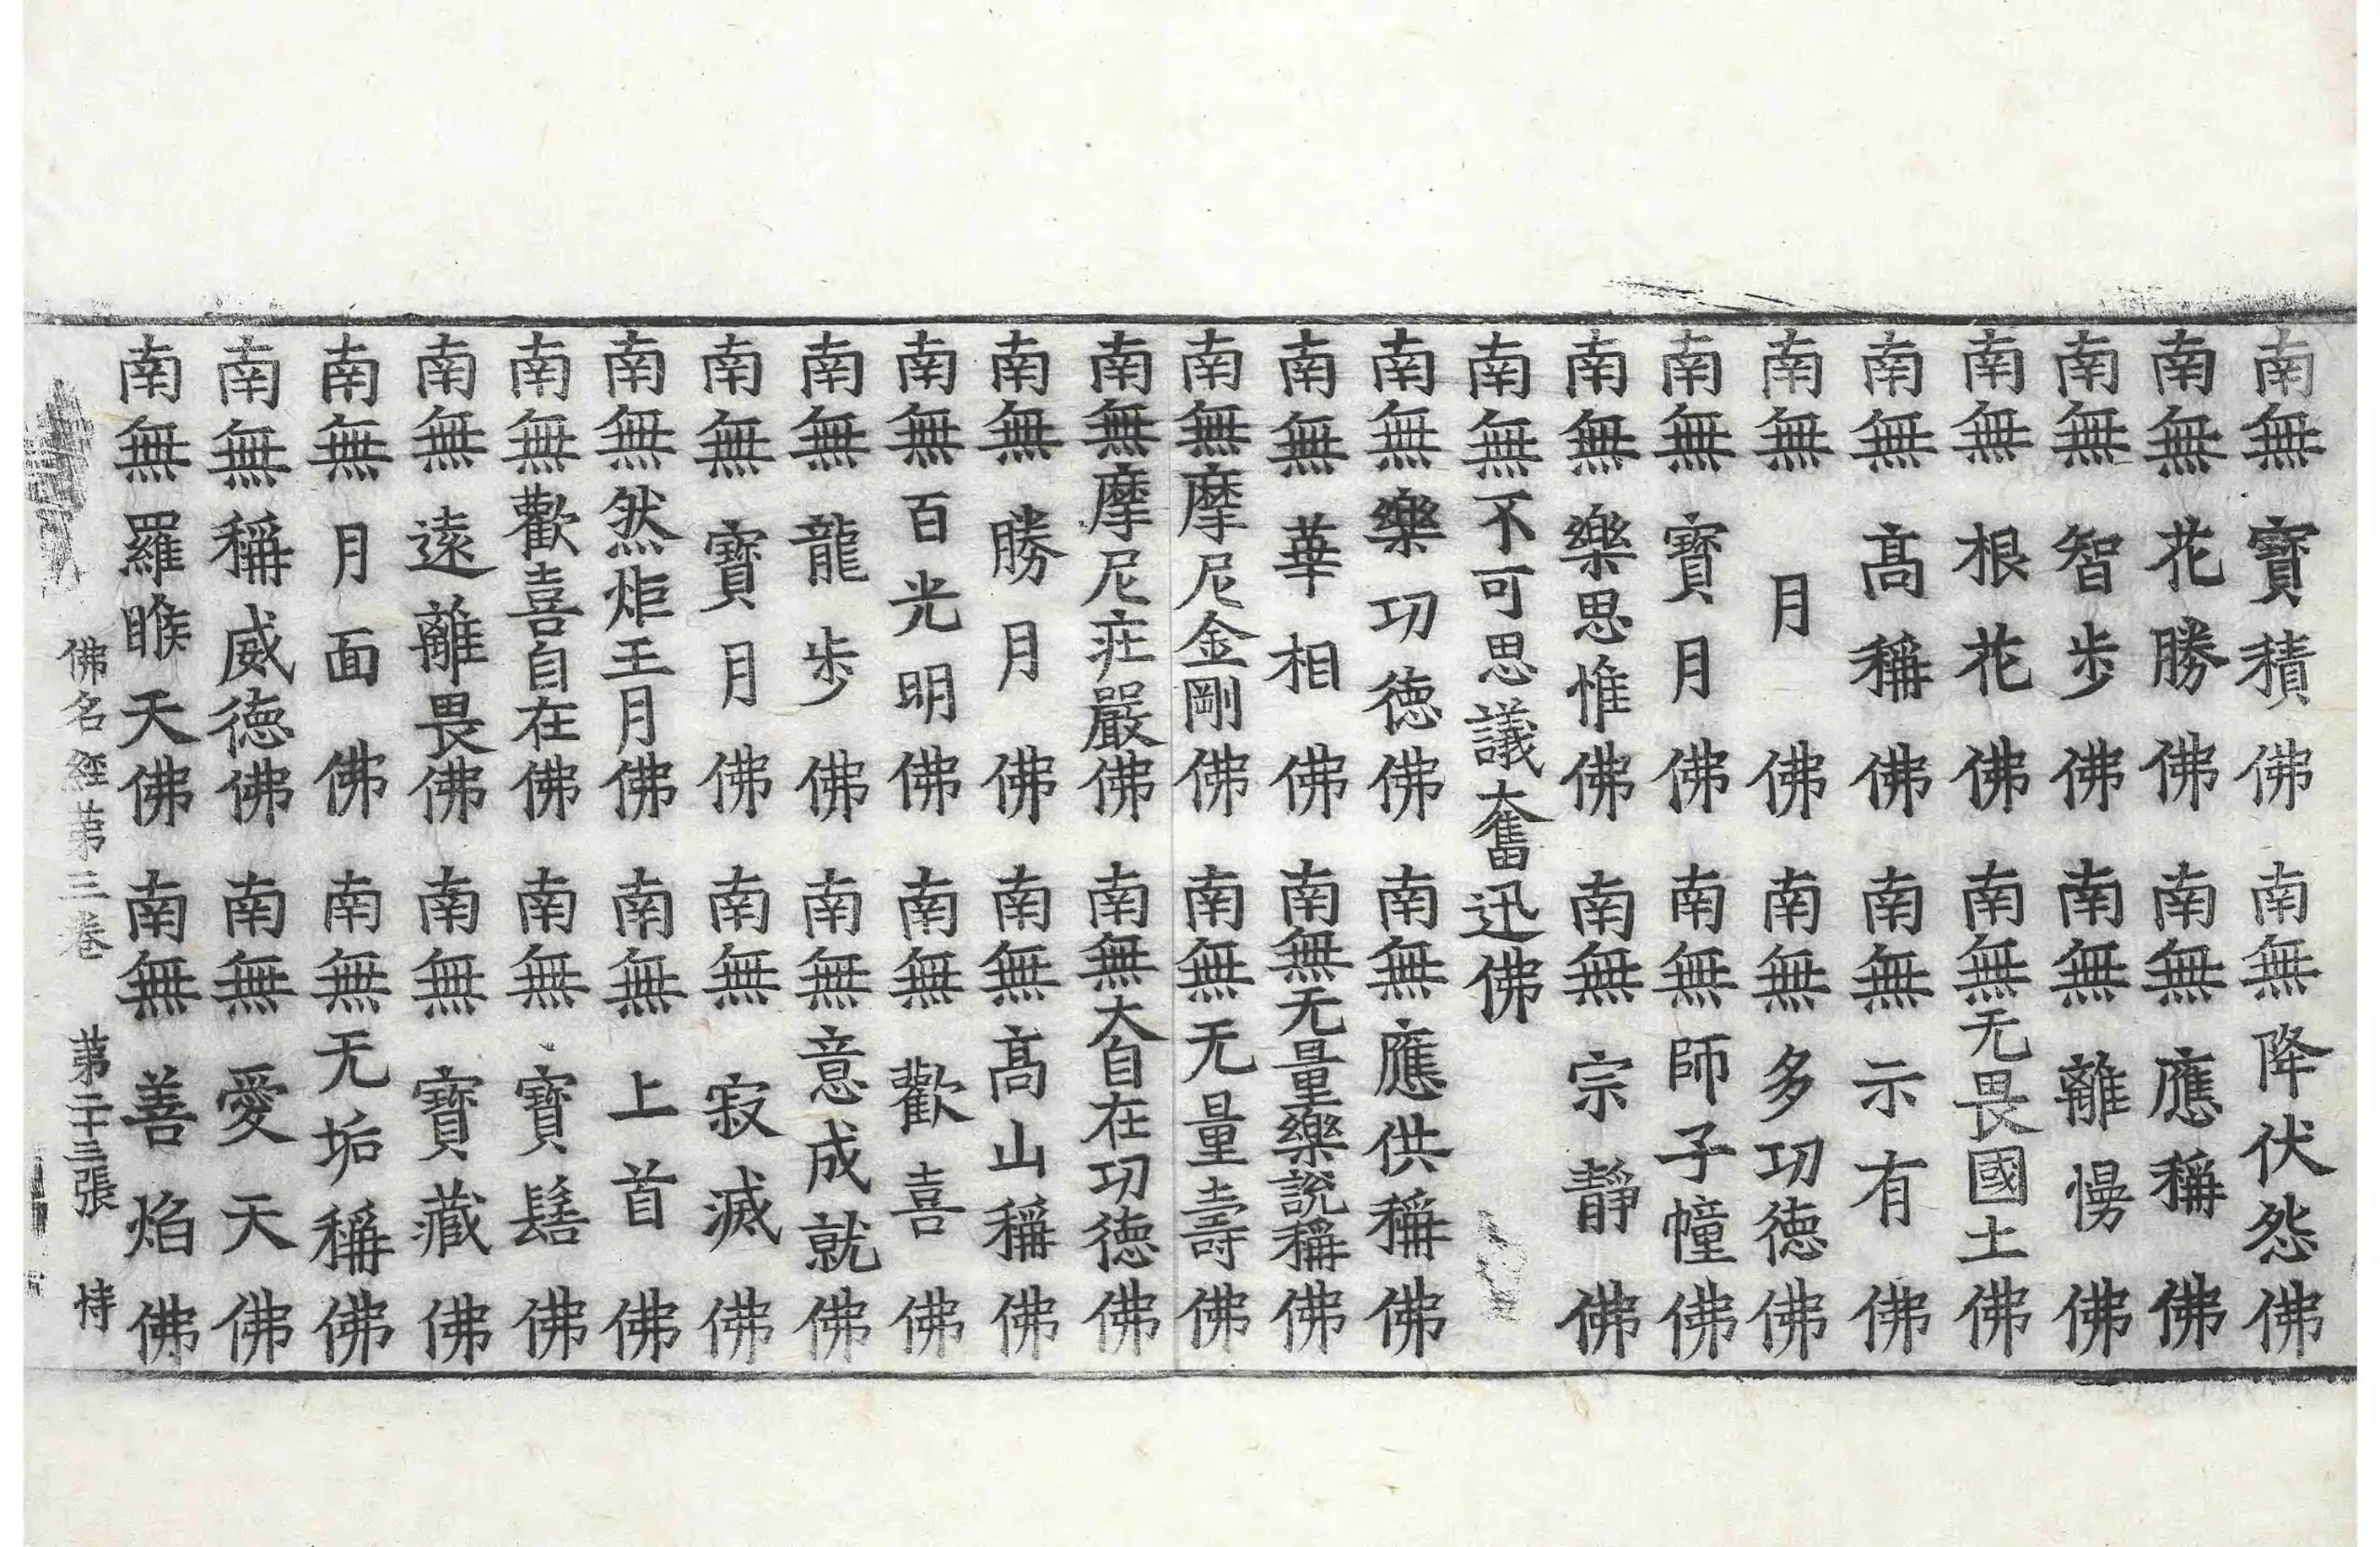 南無寶積佛　南無降伏怨佛
南無花勝佛　南無應稱佛
南無智步佛　南無離慢佛
南無根花佛　南無无畏國土佛
南無高稱佛　南無示有佛
南無月佛　南無多功德佛
南無寶月佛　南無師子幢佛
南無樂思惟佛　南無宗靜佛
南無不可思議奮迅佛
南無樂功德佛　南無應供稱佛
南無華相佛　南無无量樂說稱佛
南無摩尼金剛佛　南無无量壽佛
南無摩尼莊嚴佛　南無大自在功德佛
南無勝月佛　南無高山稱佛
南無百光明佛　南無歡喜佛
南無龍步佛　南無意成就佛
南無寶月佛　南無寂滅佛
南無然炬王月佛　南無上首佛
南無歡喜自在佛　南無寶髻佛
南無遠離畏佛　南無寶藏佛
南無月面佛　南無无垢稱佛
南無稱威德佛　南無愛天佛
南無羅睺天佛　南無善焰佛
佛名經第三卷　第二十三張　恃